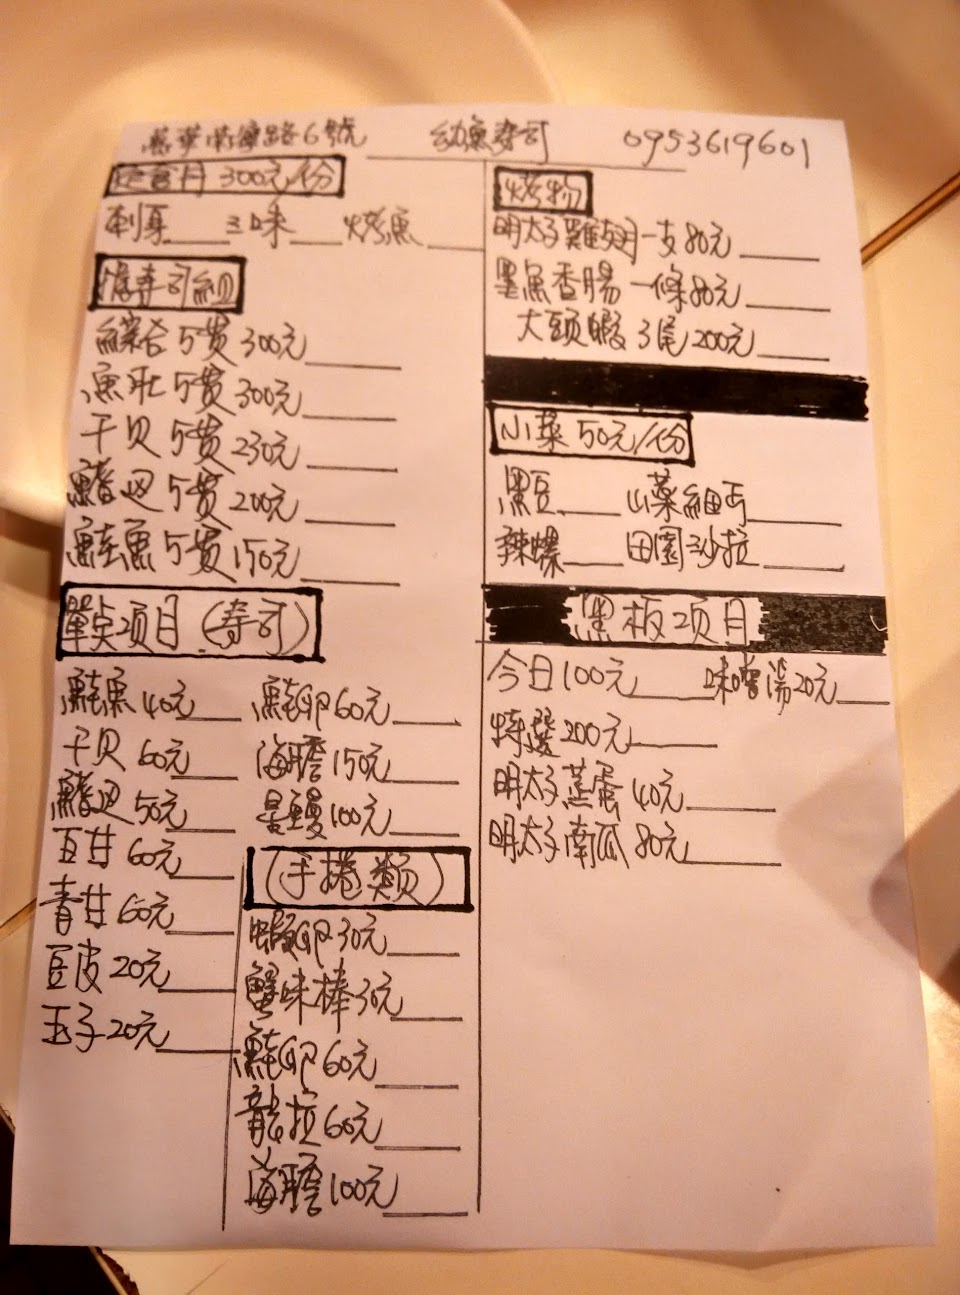 萬華南寧路6號 幼魚壽司 0953619601
定食月 300元/份
刺身 三味 烤魚
握寿司組
綜合 5貫 300元
魚肚 5貫 300元
干贝 5貫 230元
鰭边 5貫 200元
鮭魚 5貫 150元
單点项目 (寿司)
鮭魚 40元
干贝 60元
鰭边 50元
豆甘 60元
青甘 60元
豆皮 20元
玉子 20元
鮭卵 60元
海膽 150元
星鰻 100元
(手捲類)
蝦卵 30元
蟹味棒 30元
鮭卵 60元
龍拉 60元
海膽 100元
烤物
明太子雞翅 一支 80元
墨魚香腸 一條 80元
大頭蝦 3尾 200元
小菜 50元/份
黑豆 山藥細丐
辣螺 田園沙拉
黑板项目
今日 100元 味噌湯 20元
特選 200元
明太子蒸蛋 40元
明太子南瓜 80元